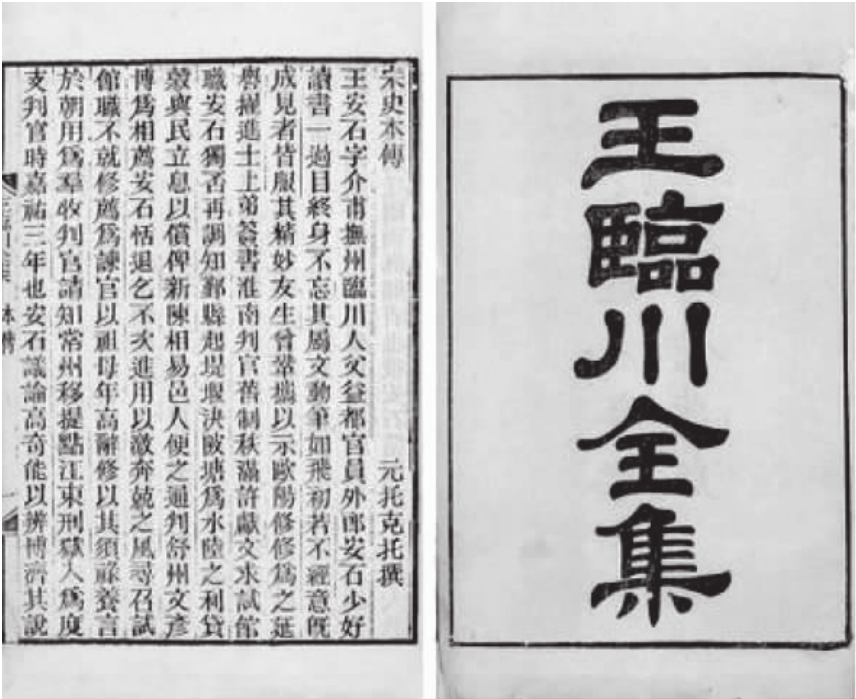 王臨川全集
宋史本傳 元托克托撰
王安石字介甫撫州臨川人父益都官員外郎安石少好
讀書一過目終身不忘其屬文動筆如飛初若不經意既
成見者皆服其精妙友生曾鞏攜以示歐陽修修爲之延
譽擢進士上第簽書淮南判官舊制秩滿許獻文求試館
職安石獨否再調知鄞縣起堤堰決陂塘爲水陸之利貸
穀與民立息以償俾新陳相易邑人便之通判舒州文彥
博爲相薦安石恬退乞不次進用以激奔競之風尋召試
館職不就修薦爲諫官以祖母年高辭修以其須祿養言
於朝用爲羣牧判官請知常州移提點江東刑獄入爲度
支判官時嘉祐三年也安石議論高奇能以辨博濟其說